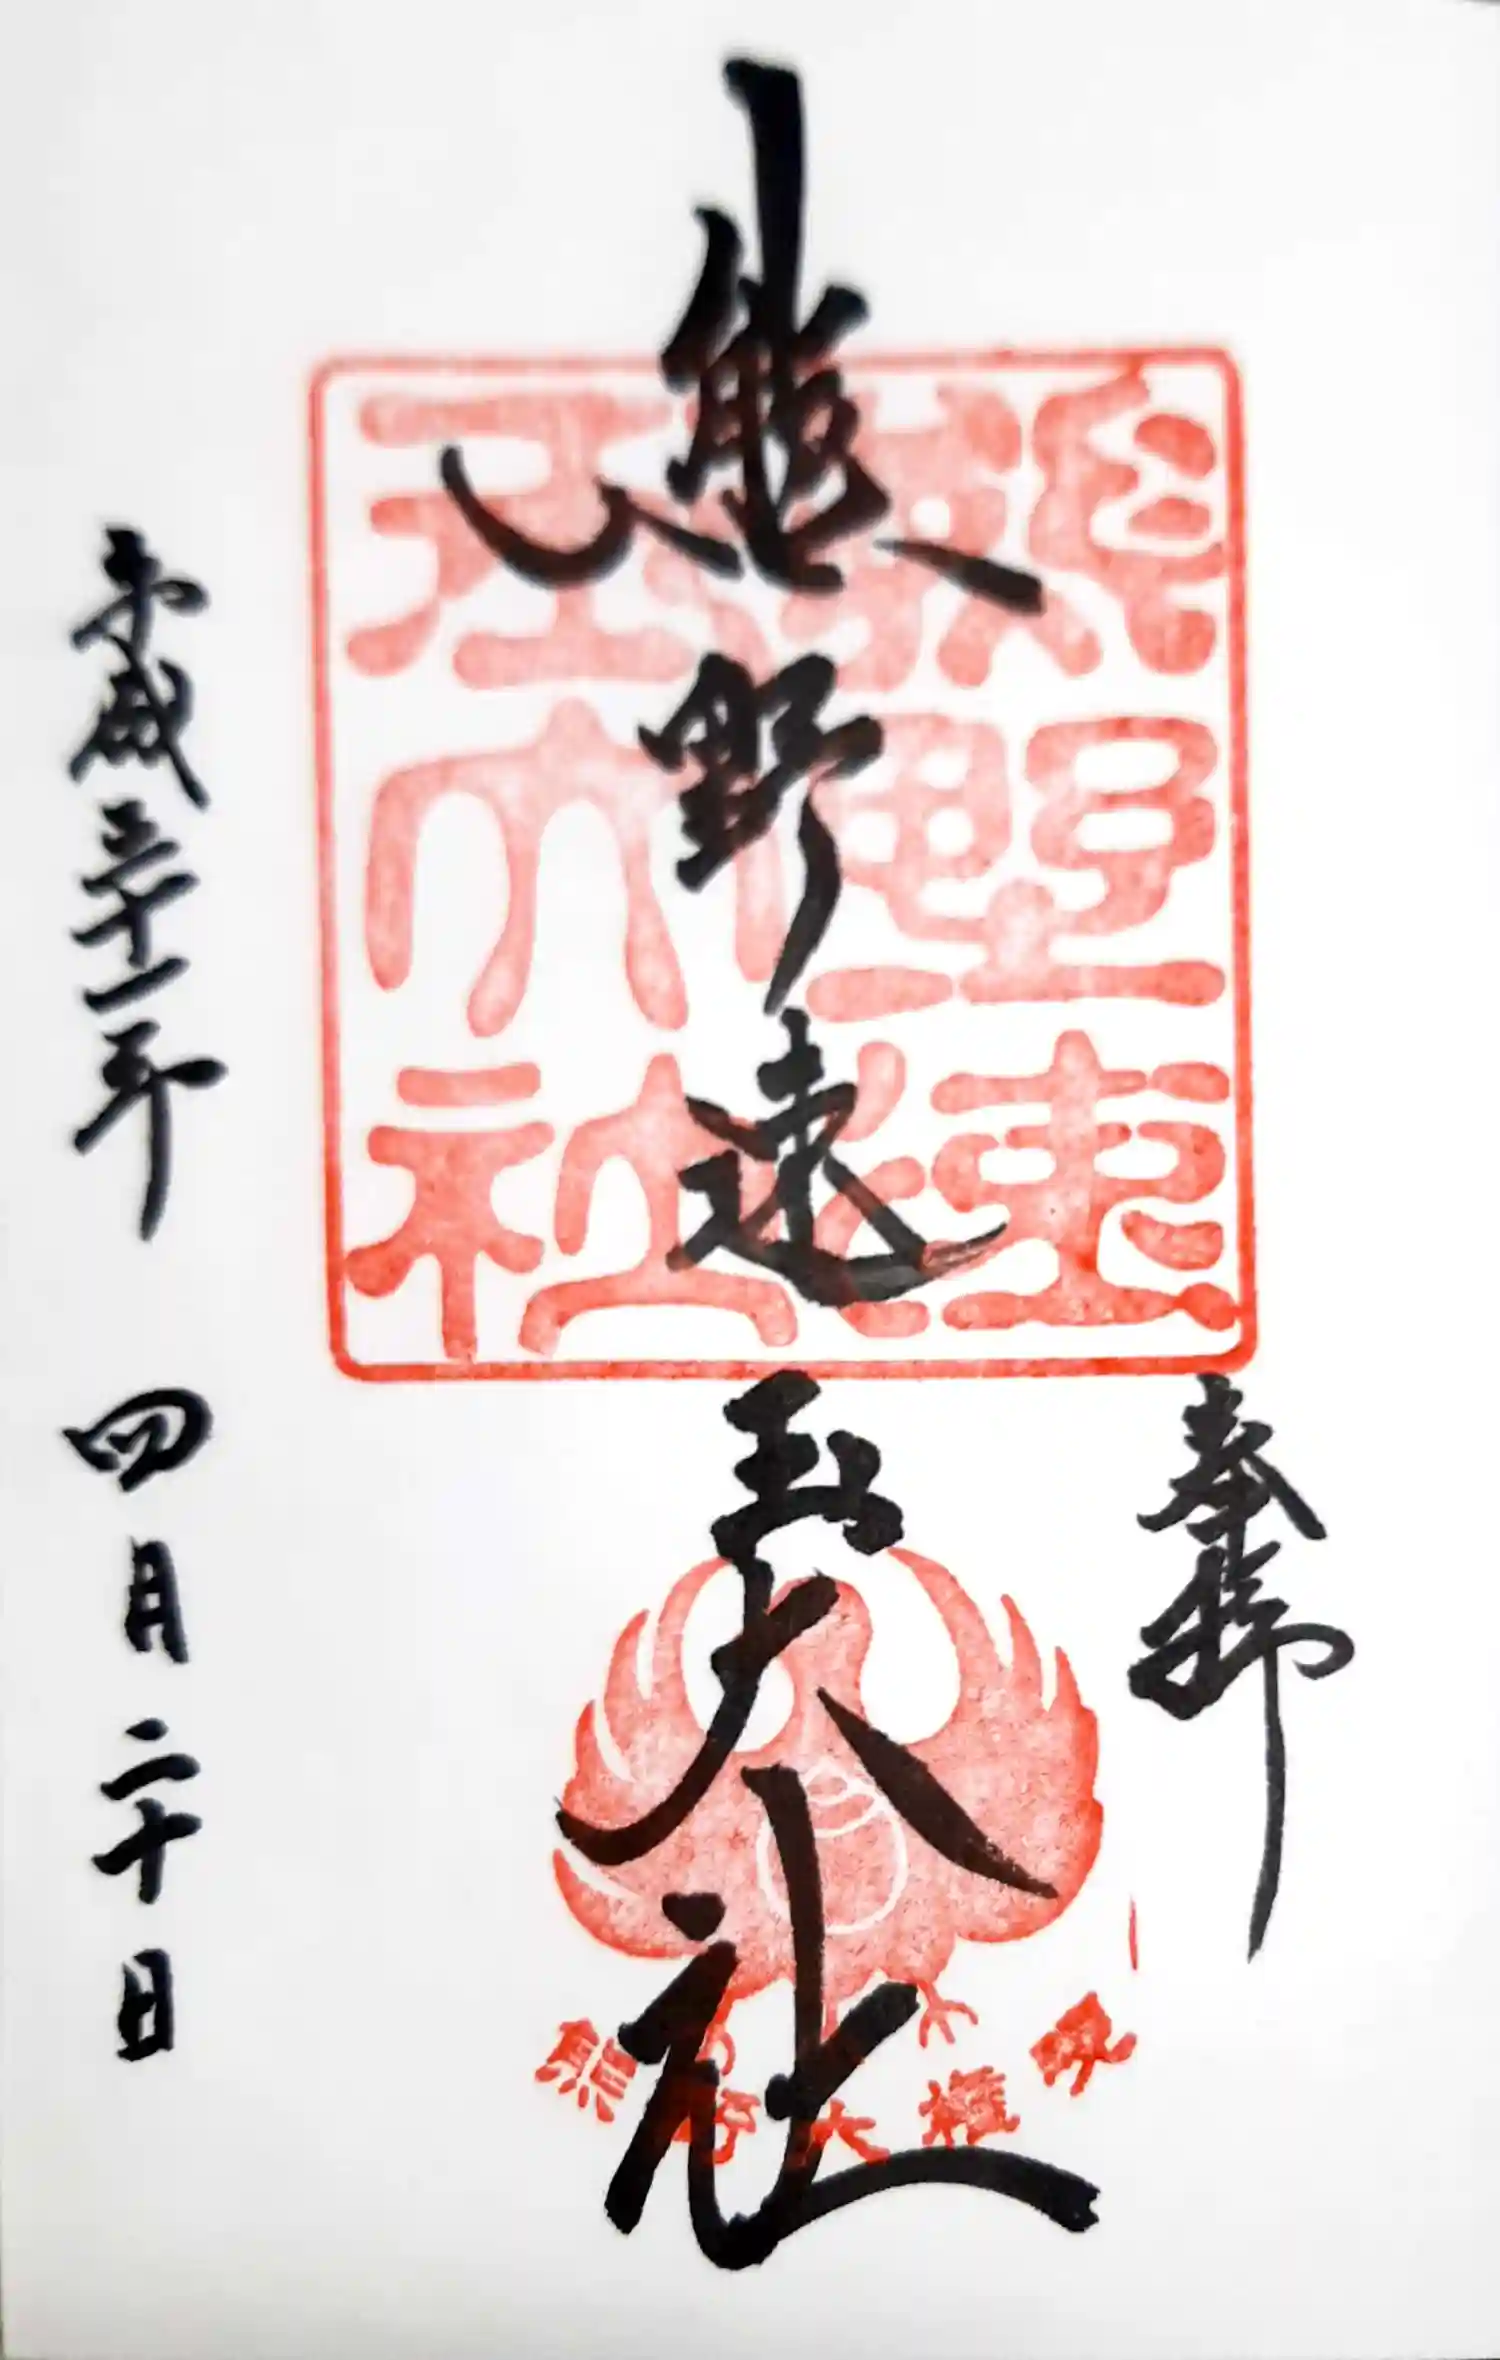 奉拝
熊野速玉大社
平成三十一年 四月二十日
熊野速玉大社
熊野大権現